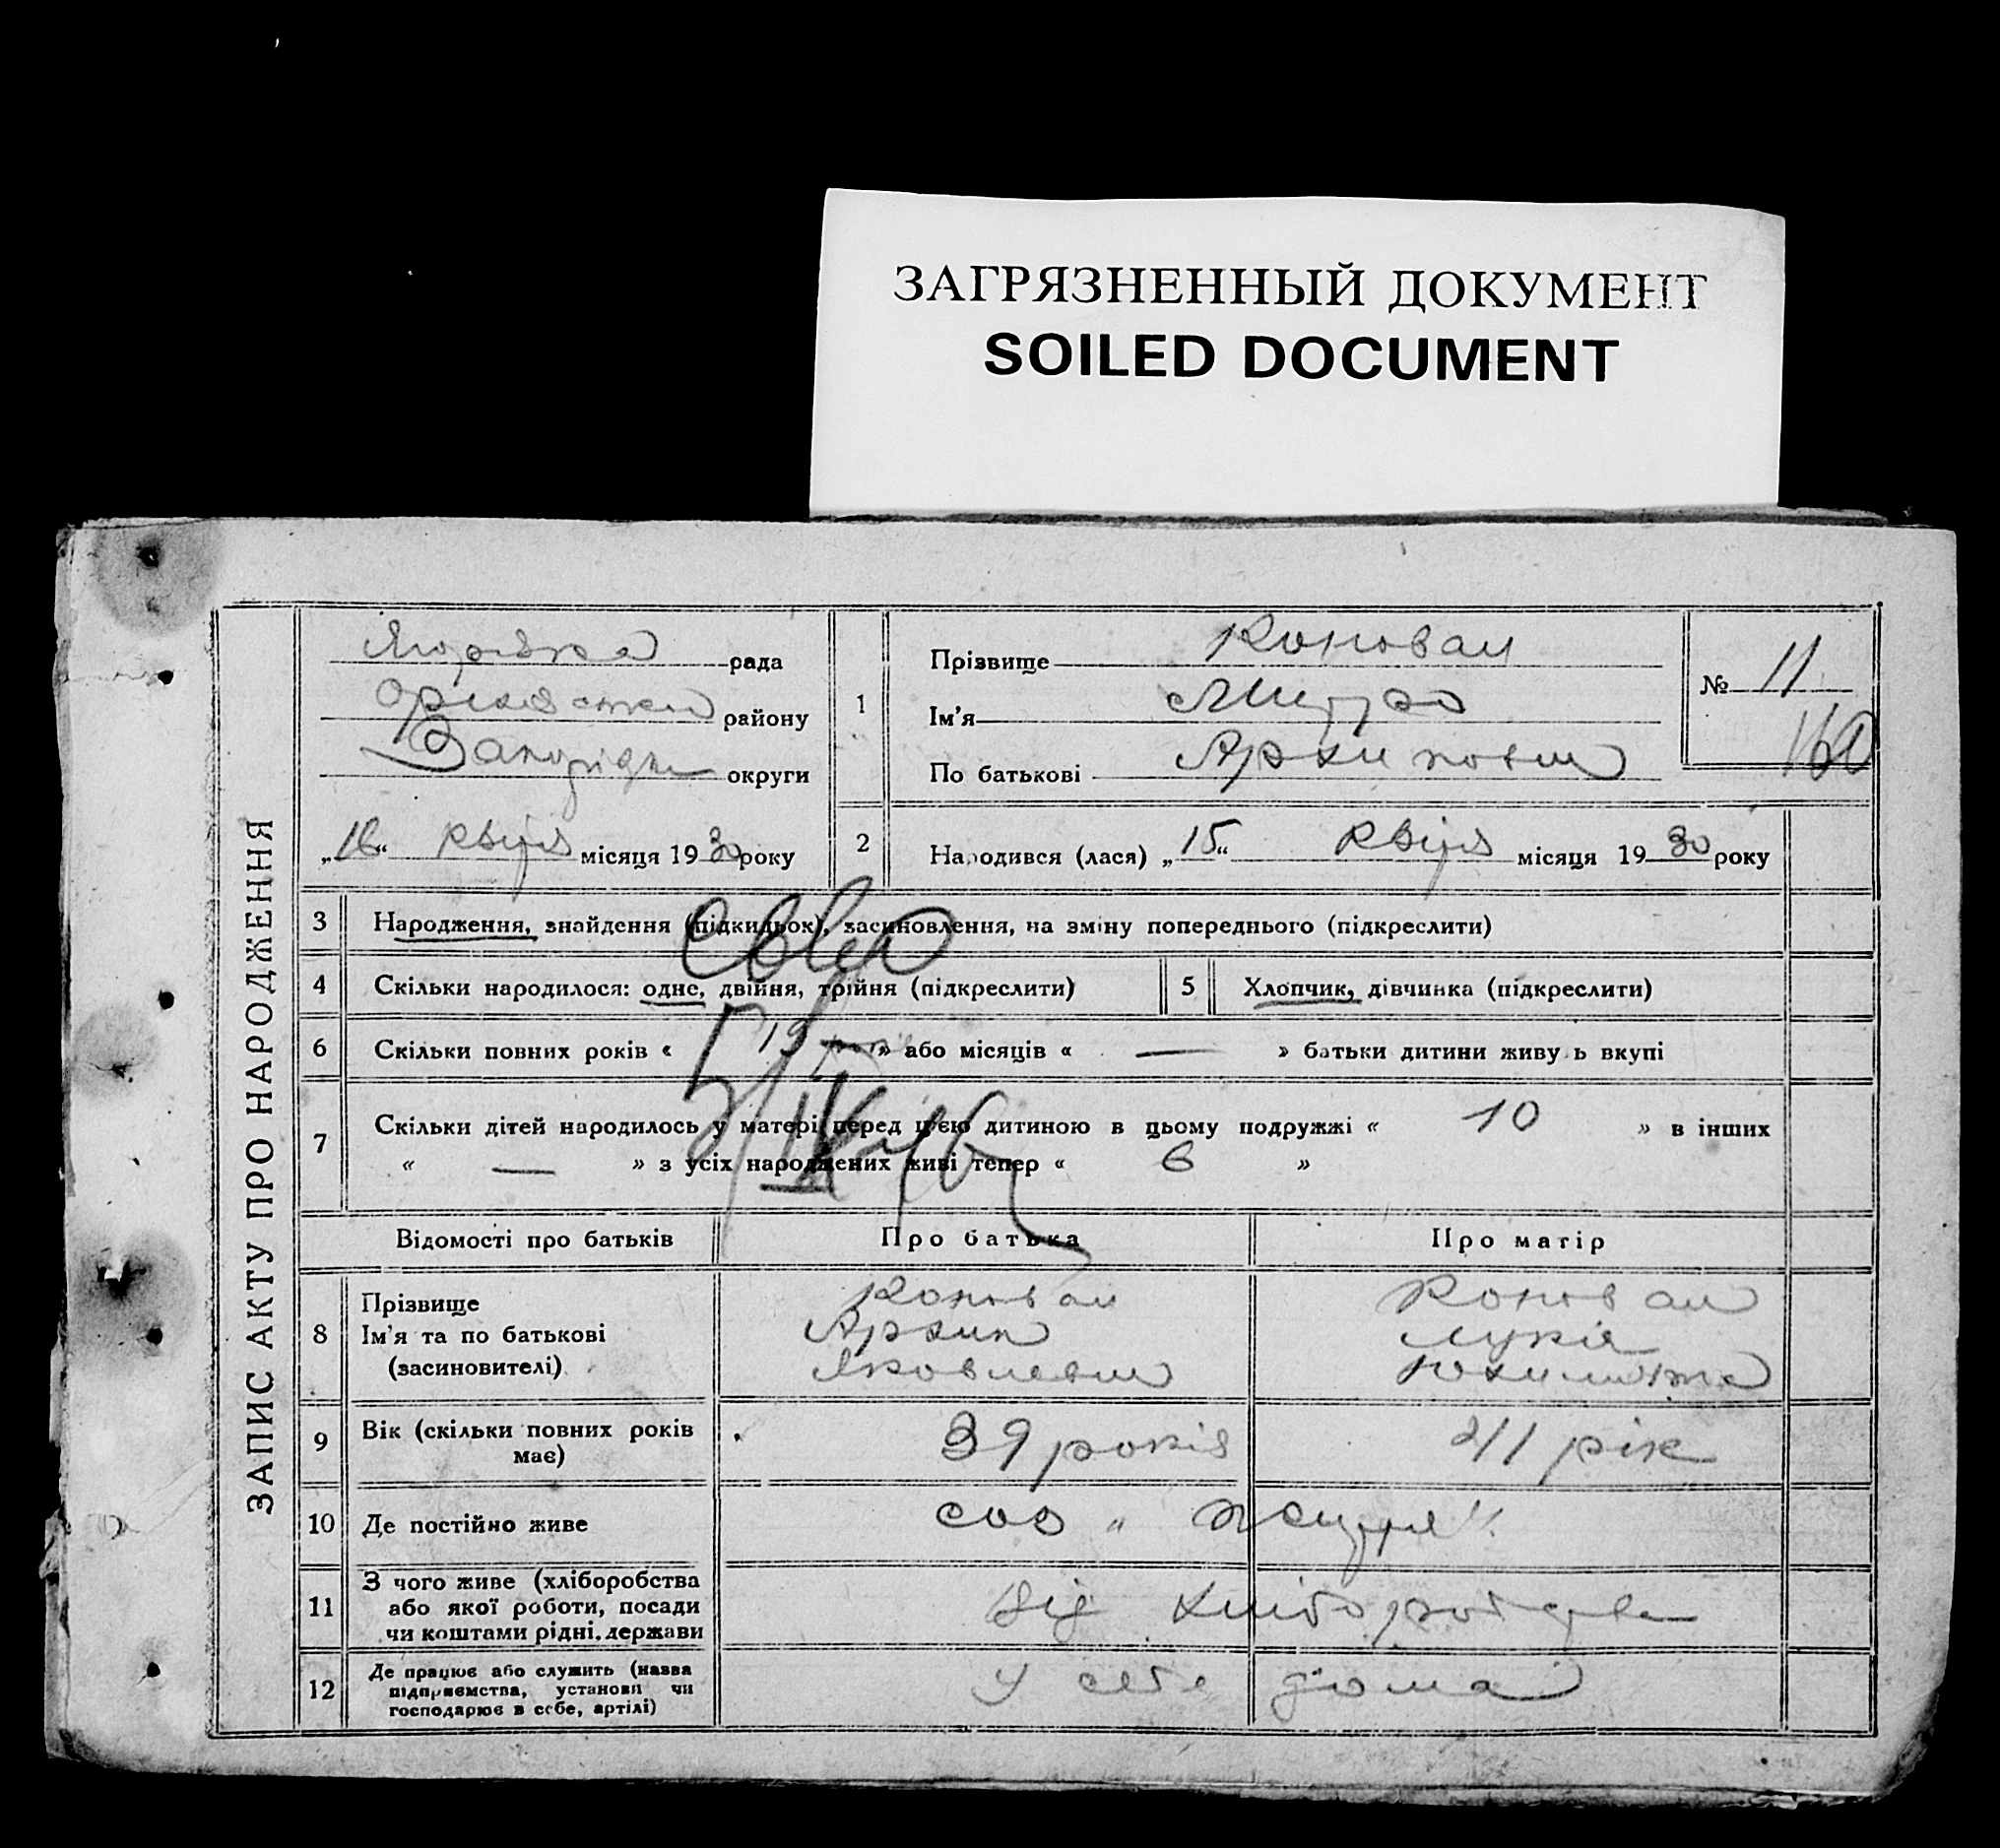 ЗАГРЯЗНЕННЫЙ ДОКУМЕНТ
SOILED DOCUMENT
ЗАПИС АКТУ ПРО НАРОДЖЕННЯ
рада
району
округи
„16“ квітня місяця 1930 року
1
Прізвище Коновал
Ім'я Митро
По батькові Архипович
№ 11
2
Народився (лася) „15“ квітня місяця 1930 року
3 Народження, знайдення (підкидьок), засиновлення, на зміну попереднього (підкреслити)
4 Скільки народилося: одне, двійня, трійня (підкреслити)
5 Хлопчик, дівчинка (підкреслити)
6 Скільки повних років « 19 » або місяців « — » батьки дитини живуть вкупі
7 Скільки дітей народилось у матері перед цією дитиною в цьому подружжі « 10 » в інших
« — » з усіх народжених живі тепер « 6 »
Відомості про батьків Про батька Про матір
8 Прізвище Коновал Коновал
Ім'я та по батькові Архип Лукія
(засиновителі) Яковлевич
9 Вік (скільки повних років має) 39 років 41 рік
10 Де постійно живе соз
11 З чого живе (хліборобства
або якої роботи, посади
чи коштами рідні, держави
від хліборобства
12 Де працює або служить (назва
підприємства, установи чи
господарює в себе, артілі)
У себе дома